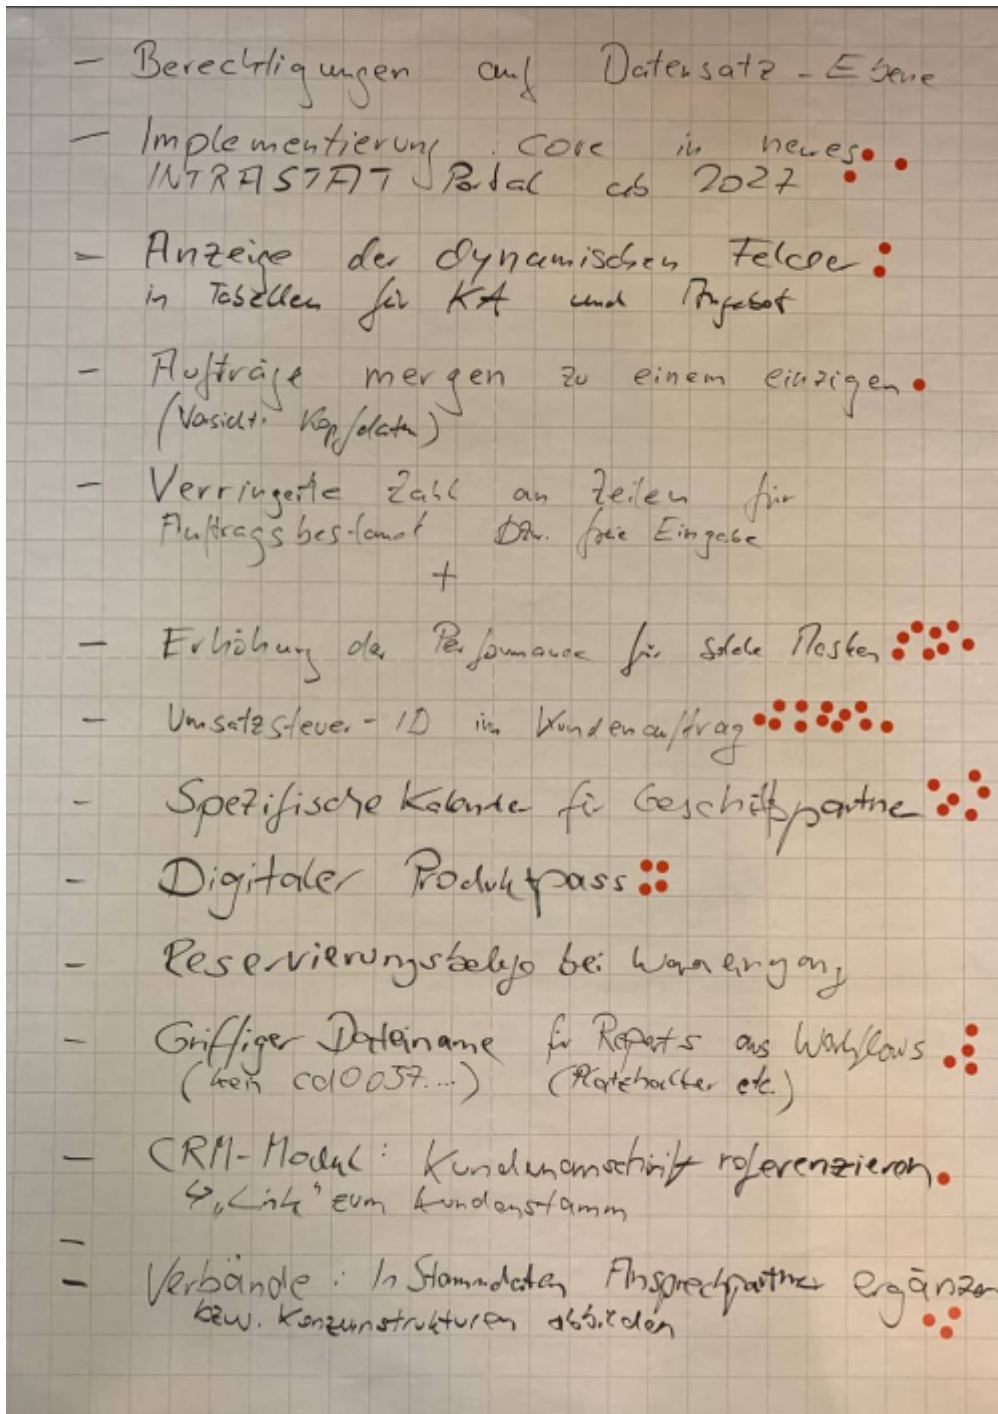 - Berechtigungen auf Datensatz-Ebene
- Implementierung : core in neues
INTRASTAT Portal ab 2027
- Anzeige der dynamischen Felder
in Tabellen für KA und Angebot
- Aufträge mergen zu einem einzigen
(Vorsicht: Kopfdaten)
- Verringerte Zahl an Zeilen für
Auftragsbestand bzw. freie Eingabe
+
- Erhöhung der Performance für solche Masken
- Umsatzsteuer-ID im Kundenauftrag
- Spezifische Kalender für Geschäftspartner
- Digitaler Produktpass
- Reservierungsbelege bei Wareneingang
- Griffiger Dateiname für Reports aus Workflows
(kein cd10037...) (Platzhalter etc.)
- CRM-Modul: Kundenanschrift referenzieren
↳ „Link“ zum Kundenstamm
-
- Verbände: In Stammdaten Ansprechpartner ergänzen
bzw. Konzernstrukturen abbilden